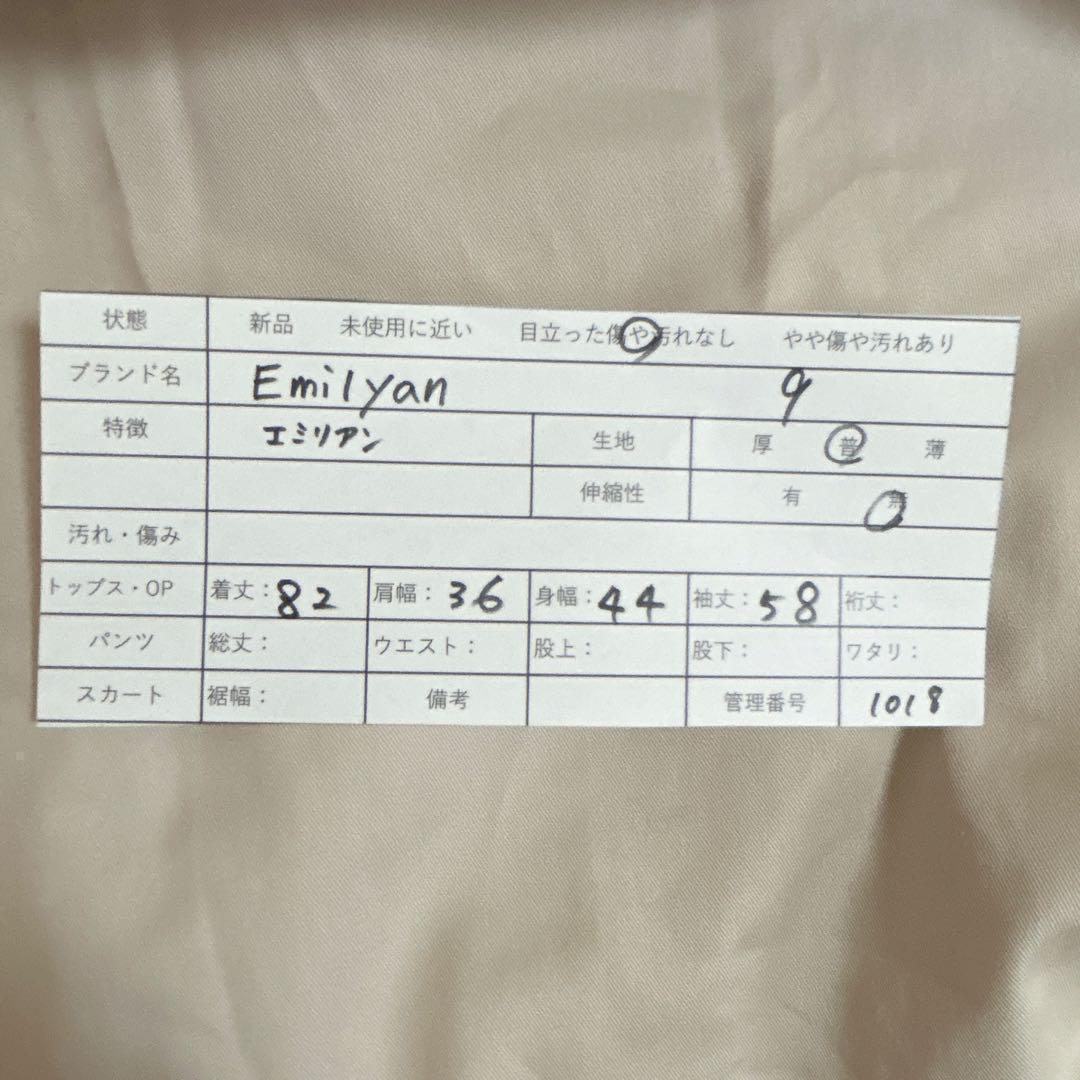 状態 新品 未使用に近い 目立った傷や汚れなし やや傷や汚れあり
ブランド名 Emilyan 9
特徴 エミリアン 生地 厚 普 薄
伸縮性 有 無
汚れ・傷み
トップス・OP 着丈：82 肩幅：36 身幅：44 袖丈：58 裄丈：
パンツ 総丈： ウエスト： 股上： 股下： ワタリ：
スカート 裾幅： 備考 管理番号 1018